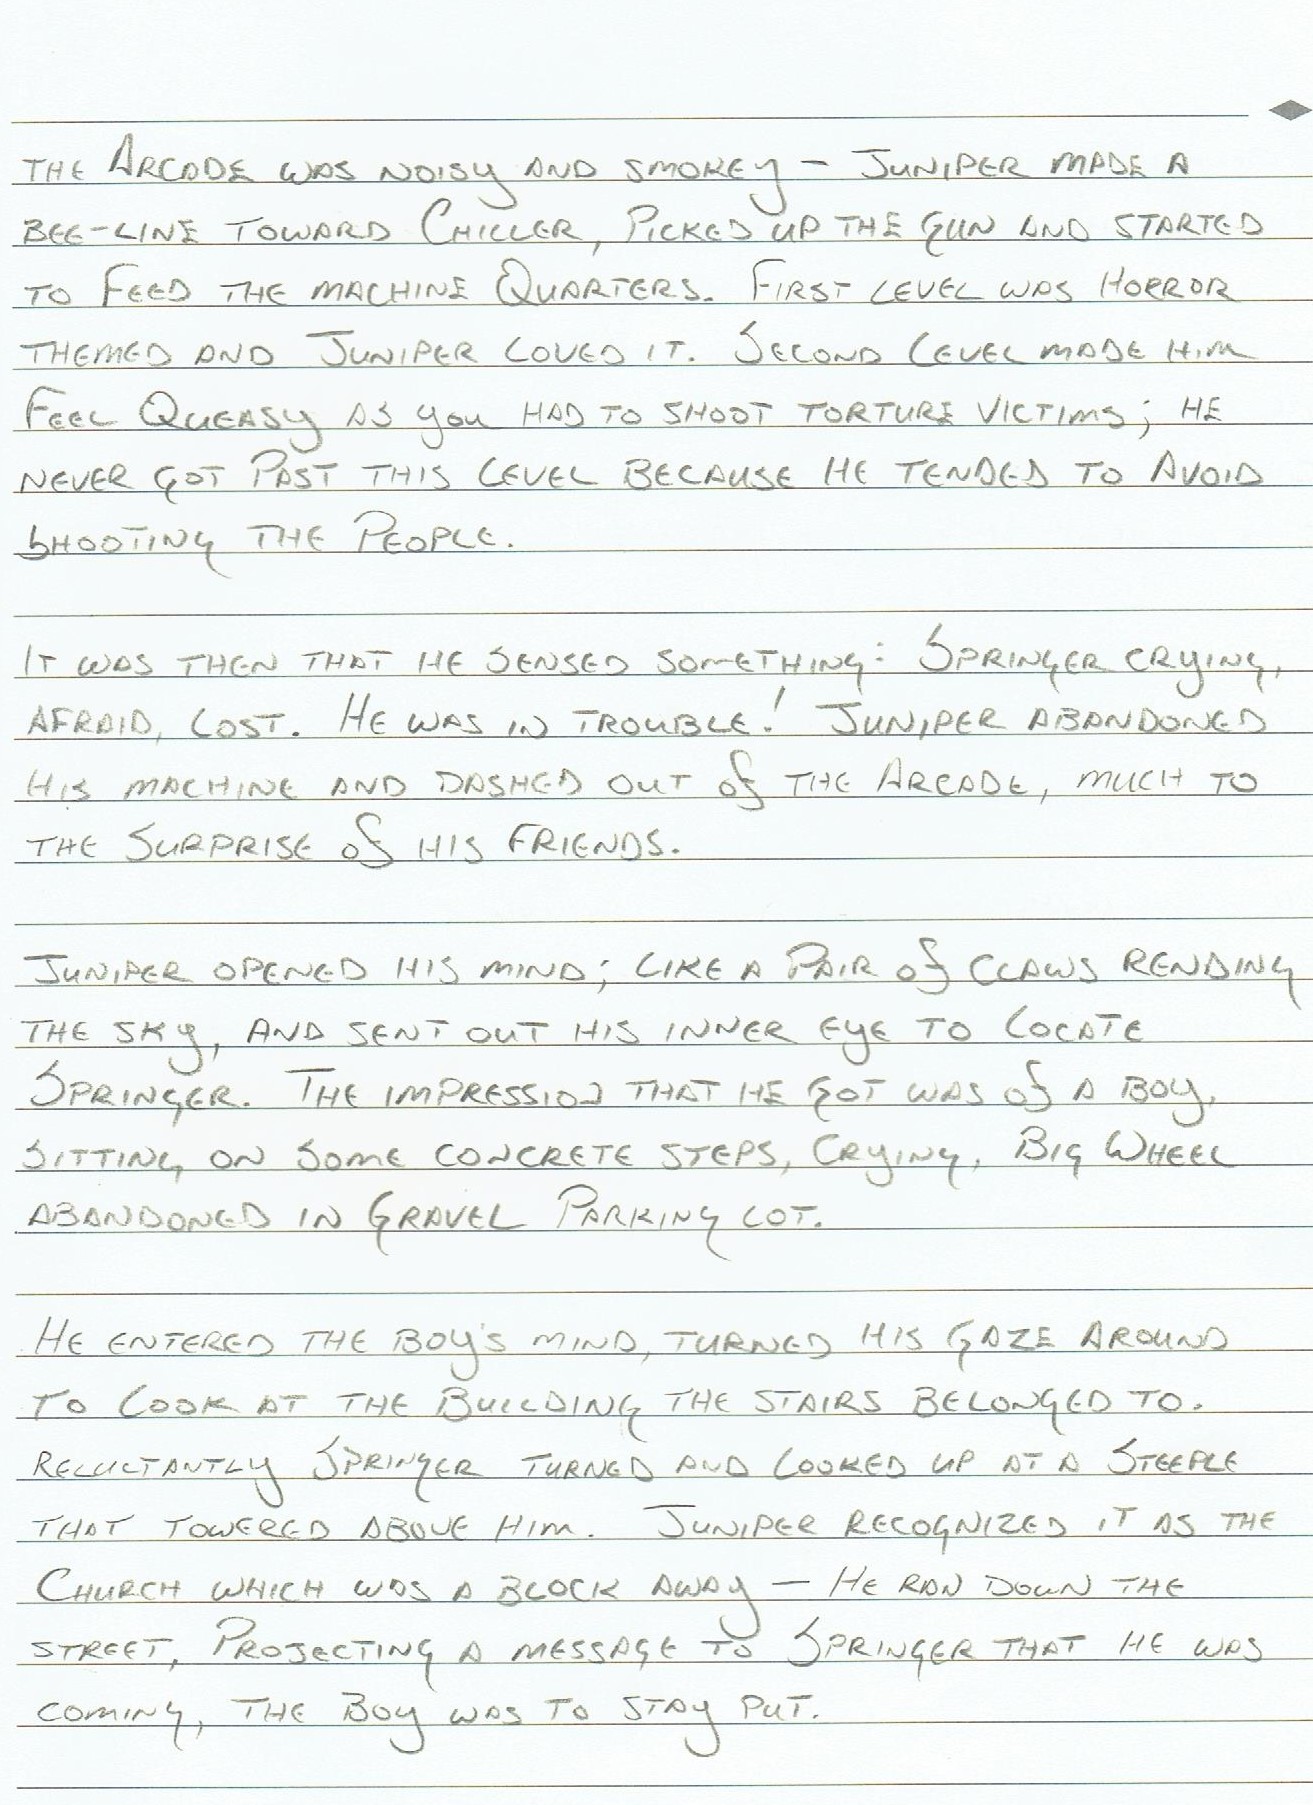 THE ARCADE WAS NOISY AND SMOKEY — JUNIPER MADE A
BEE-LINE TOWARD CHILLER, PICKED UP THE GUN AND STARTED
TO FEED THE MACHINE QUARTERS. FIRST LEVEL WAS HORROR
THEMED AND JUNIPER LOVED IT. SECOND LEVEL MADE HIM
FEEL QUEASY AS you HAD TO SHOOT TORTURE VICTIMS; HE
NEVER GOT PAST THIS LEVEL BECAUSE HE TENDED TO AVOID
SHOOTING THE PEOPLE.
IT WAS THEN THAT HE SENSED SOMETHING: SPRINGER CRYING,
AFRAID, LOST. HE WAS IN TROUBLE! JUNIPER ABANDONED
HIS MACHINE AND DASHED OUT of THE ARCADE, MUCH TO
THE SURPRISE of HIS FRIENDS.
JUNIPER OPENED HIS MIND; LIKE A PAIR of CLAWS RENDING
THE SKY, AND SENT OUT HIS INNER EYE TO LOCATE
SPRINGER. THE IMPRESSION THAT HE GOT WAS of A BOY,
SITTING ON SOME CONCRETE STEPS, CRYING, BIG WHEEL
ABANDONED IN GRAVEL PARKING LOT.
HE ENTERED THE BOY'S MIND, TURNED HIS GAZE AROUND
TO LOOK AT THE BUILDING THE STAIRS BELONGED TO.
RELUCTANTLY SPRINGER TURNED AND LOOKED UP AT A STEEPLE
THAT TOWERED ABOVE HIM. JUNIPER RECOGNIZED IT AS THE
CHURCH WHICH WAS A BLOCK AWAY — HE RAN DOWN THE
STREET, PROJECTING A MESSAGE TO SPRINGER THAT HE WAS
COMING, THE BOY WAS TO STAY PUT.